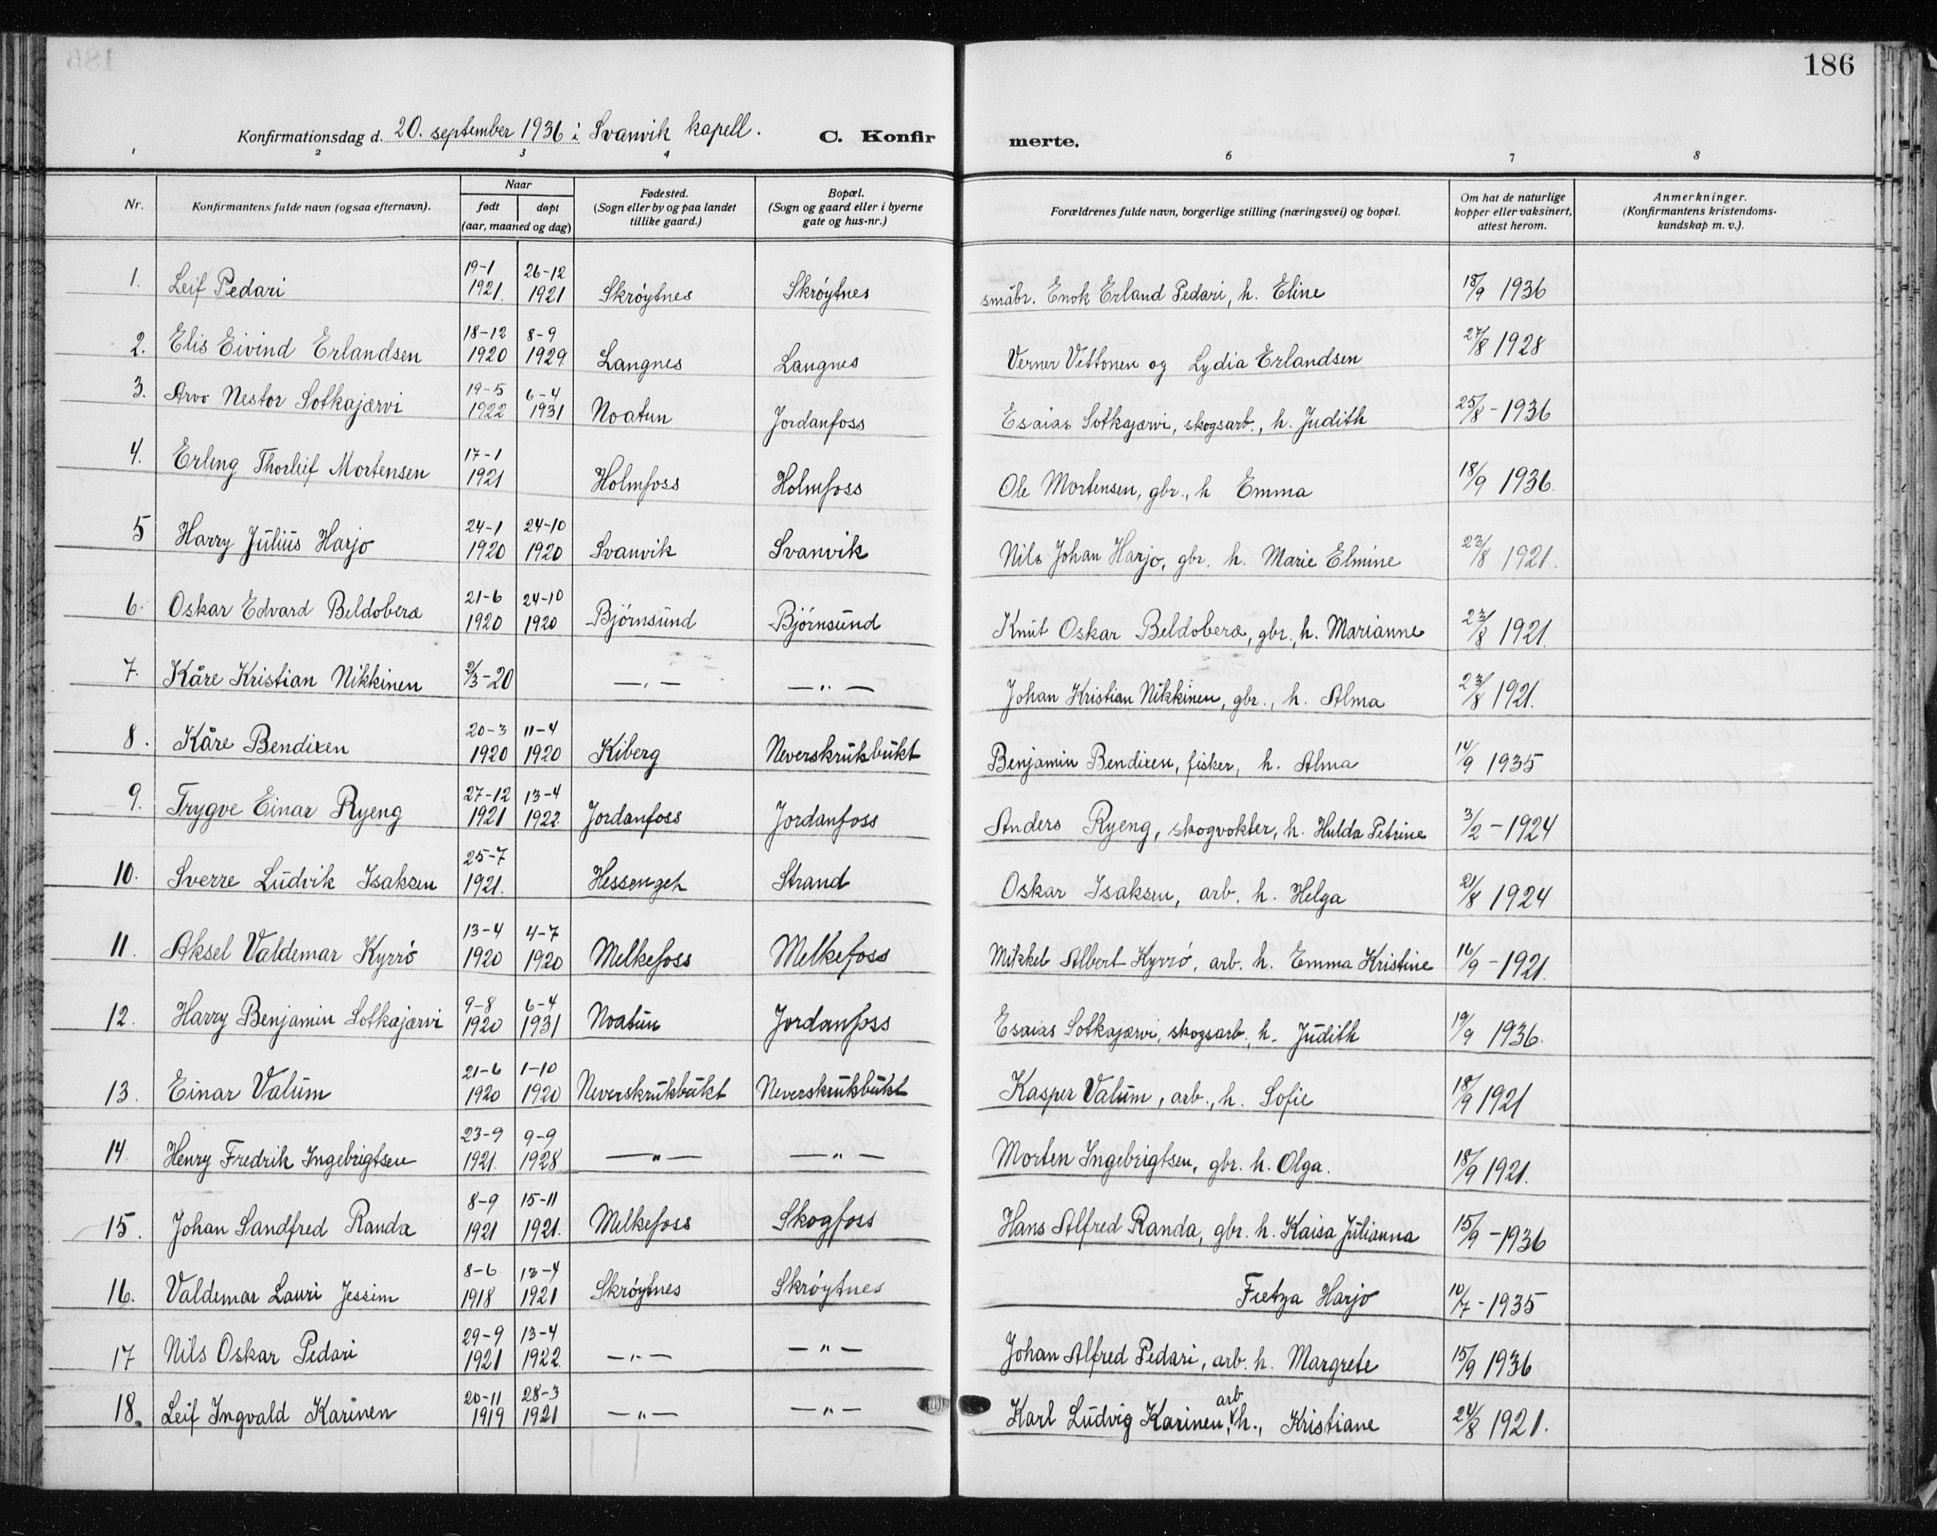 186
Konfirmationsdag d. 20. september 1936 i Svanvik kapell. C. Konfirmerte.
1 2 3 4 6 7 8
Nr. Konfirmantens fulde navn (ogsaa efternavn). Naar født døpt (aar, maaned og dag) Fødested. (Sogn eller by og paa landet tillike gaard.) Bopæl. (Sogn og gaard eller i byerne gate og hus-nr.) Forældrenes fulde navn, borgerlige stilling (næringsvei) og bopæl. Om hat de naturlige kopper eller vaksinert, attest herom. Anmerkninger. (Konfirmantens kristendomskundskap m. v.).
1. Leif Pedari 19-1 1921. 26-12 1921 Skrøytnes Skrøytnes småbr. Enok Erland Pedari, h. Eline 18/9 1936
2. Elis Eivind Erlandsen 18-12 1920 8-9 1929 Langnes Langnes Verner Vittonen og Lydia Erlandsen 27/8 1928
3. Arvo Nestor Sotkajærvi 19-5 1922 6-4 1931 Noatun Jordanfoss Esaias Sotkajærvi, skogsarb., h. Judith 25/8-1936
4. Erling Thorleif Mortensen 17-1 1921 Holmfoss Holmfoss Ole Mortensen, gbr., h Emma 18/9 1936.
5 Harry Julius Harjo 24-1 1920 24-10 1920 Svanvik Svanvik Nils Johan Harjo, gbr. h. Marie Elmine 23/8 1921.
6. Oskar Edvard Beldobera 21-6 1920 24-10 1920 Bjørnsund Bjørnsund Knut Oskar Beldobera, gbr., h. Marianne 23/8 1921.
7. Kåre Kristian Nikkinen 2/3-20 —„— —„— Johan Kristian Nikkinen, gbr., h. Alma 23/8 1921.
8. Kåre Bendixen 20-3 1920 11-4 1920 Kiberg Neverskrukbukt Benjamin Bendixen, fisker, h. Alma 14/9 1935
9. Trygve Einar Ryeng 27-12 1921 13-4 1922 Jordanfoss Jordanfoss Anders Ryeng, skogvokter, h. Hulda Petrine 3/2-1924
10. Sverre Ludvik Isaksen 25-7 1921. Hessenget Strand Oskar Isaksen, arb. h. Helga 21/8 1924
11. Aksel Valdemar Kyrrö 13-4 1920 4-7 1920 Melkefoss Melkefoss Mikkel Albert Kyrrö, arb. h. Emma Kristine 16/9-1921.
12. Harry Benjamin Sotkajærvi 9-8 1920 6-4 1931 Noatun Jordanfoss Esaias Sotkajærvi, skogsarb., h. Judith 19/9 1936.
13. Einar Valum 21-6 1920 1-10 1920 Neverskrukbukt Neverskrukbukt Kasper Valum, arb., h. Sofie 18/9 1921
14. Henry Fredrik Ingebrigtsen 23-9 1921. 9-9 1928 —„— —„— Morten Ingebrigtsen, gbr. h. Olga. 18/9 1921.
15. Johan Sandfred Randa 8-9 1921 15-11 1921. Melkefoss Skogfoss Hans Alfred Randa, gbr. h. Kaisa Julianna 15/9-1936
16. Valdemar Lauri Jessim 8-6 1918 13-4 1921 Skrøytnes Skrøytnes Harjo 10/7-1935
17 Nils Oskar Pedari 29-9 1921 13-4 1922. —„— —„— Johan Alfred Pedari, arb. h. Margrete 15/9 1936
18. Leif Ingvald Karinen 20-11 1919 28-3 1921 —„— —„— Karl Ludvig Karinen, arb h., Kristiane 24/8 1921.